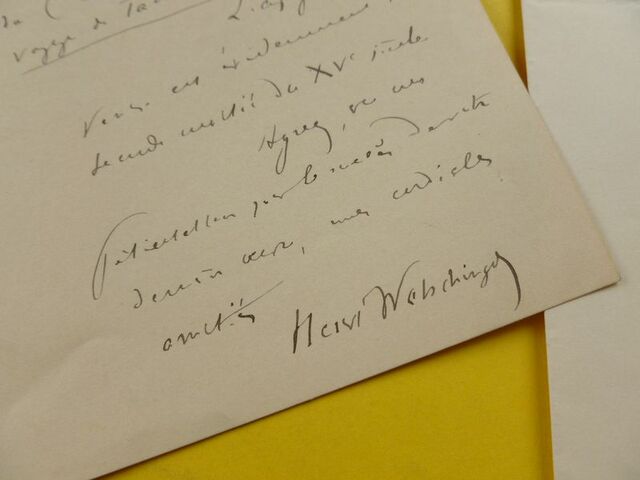 voyage de
Verse est évidemment
seconde moitié du XVe siècle
Agréez, avec mes
félicitations pour le succès de votre
dernière œuvre, mes cordiales
amitiés
Henri Welschinger